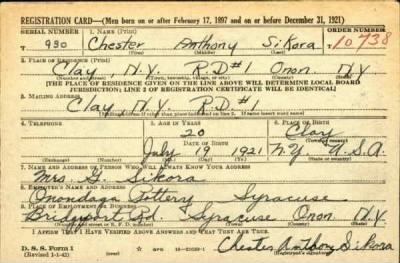 REGISTRATION CARD—(Men born on or after February 17, 1897 and on or before December 31, 1921)
SERIAL NUMBER 1. NAME (Print) ORDER NUMBER
980 Chester Anthony Sikora 10738
(First) (Middle) (Last)
2. PLACE OF RESIDENCE (Print)
Clay N.Y. R.D#1 Onon N.Y
(Number and street) (Town, township, village, or city) (County) (State)
[THE PLACE OF RESIDENCE GIVEN ON THE LINE ABOVE WILL DETERMINE LOCAL BOARD
JURISDICTION; LINE 2 OF REGISTRATION CERTIFICATE WILL BE IDENTICAL]
3. MAILING ADDRESS
Clay, N.Y. R.D#1
[Mailing address if other than place indicated on line 2. If same insert word same]
4. TELEPHONE 5. AGE IN YEARS 6. PLACE OF BIRTH
20 Clay
DATE OF BIRTH (Town or county)
July 19 1921 N.Y. U.S.A
(Exchange) (Number) (Mo.) (Day) (Yr.) (State or country)
7. NAME AND ADDRESS OF PERSON WHO WILL ALWAYS KNOW YOUR ADDRESS
Mrs. G. Sikora
8. EMPLOYER'S NAME AND ADDRESS
Onondaga Pottery Syracuse
9. PLACE OF EMPLOYMENT OR BUSINESS
Bridgeport Rd. Syracuse Onon N.Y
(Number and street or R. F. D. number) (Town) (County) (State)
I AFFIRM THAT I HAVE VERIFIED ABOVE ANSWERS AND THAT THEY ARE TRUE.
D. S. S. Form 1 GPO Chester Anthony Sikora
(Revised 1-1-42) (Registrant's signature)